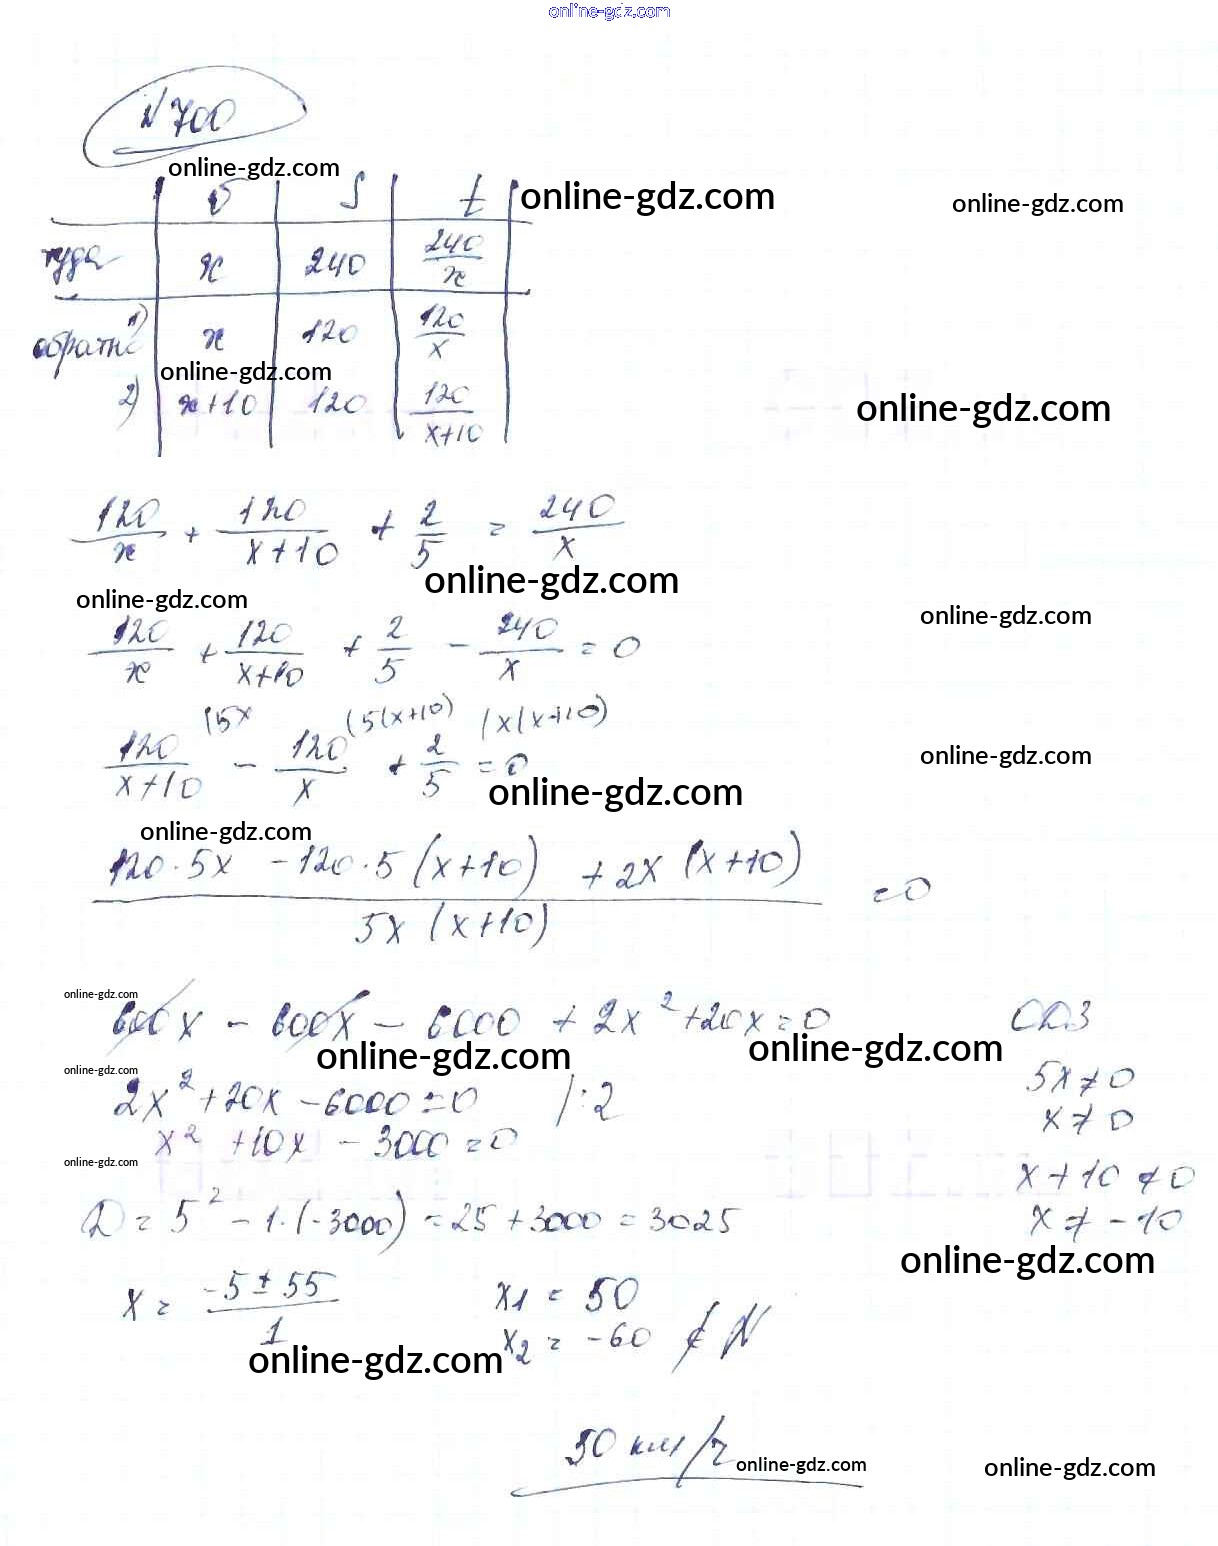 online-gdz.com
№700
online-gdz.com
v S t online-gdz.com online-gdz.com
туда x 240 240/x
обратно 1) x 120 120/x
online-gdz.com
2) x+10 120 120/(x+10) online-gdz.com
120/x + 120/(x+10) + 2/5 = 240/x
online-gdz.com
online-gdz.com online-gdz.com
120/x + 120/(x+10) + 2/5 - 240/x = 0
(5x (5(x+10) (x(x+10)
120/(x+10) - 120/x + 2/5 = 0 online-gdz.com
online-gdz.com
online-gdz.com
120·5x - 120·5(x+10) + 2x(x+10)
5x(x+10) = 0
online-gdz.com
600x - 600x - 6000 + 2x²+20x=0 ОДЗ
online-gdz.com online-gdz.com
online-gdz.com
2x²+20x-6000=0 /:2 5x≠0
x²+10x-3000=0 x≠0
online-gdz.com
x+10≠0
D = 5² - 1·(-3000) = 25+3000 = 3025 x≠-10
online-gdz.com
x = (-5±55)/1 x1 = 50
x2 = -60 ∉ N
online-gdz.com
50 км/ч
online-gdz.com online-gdz.com